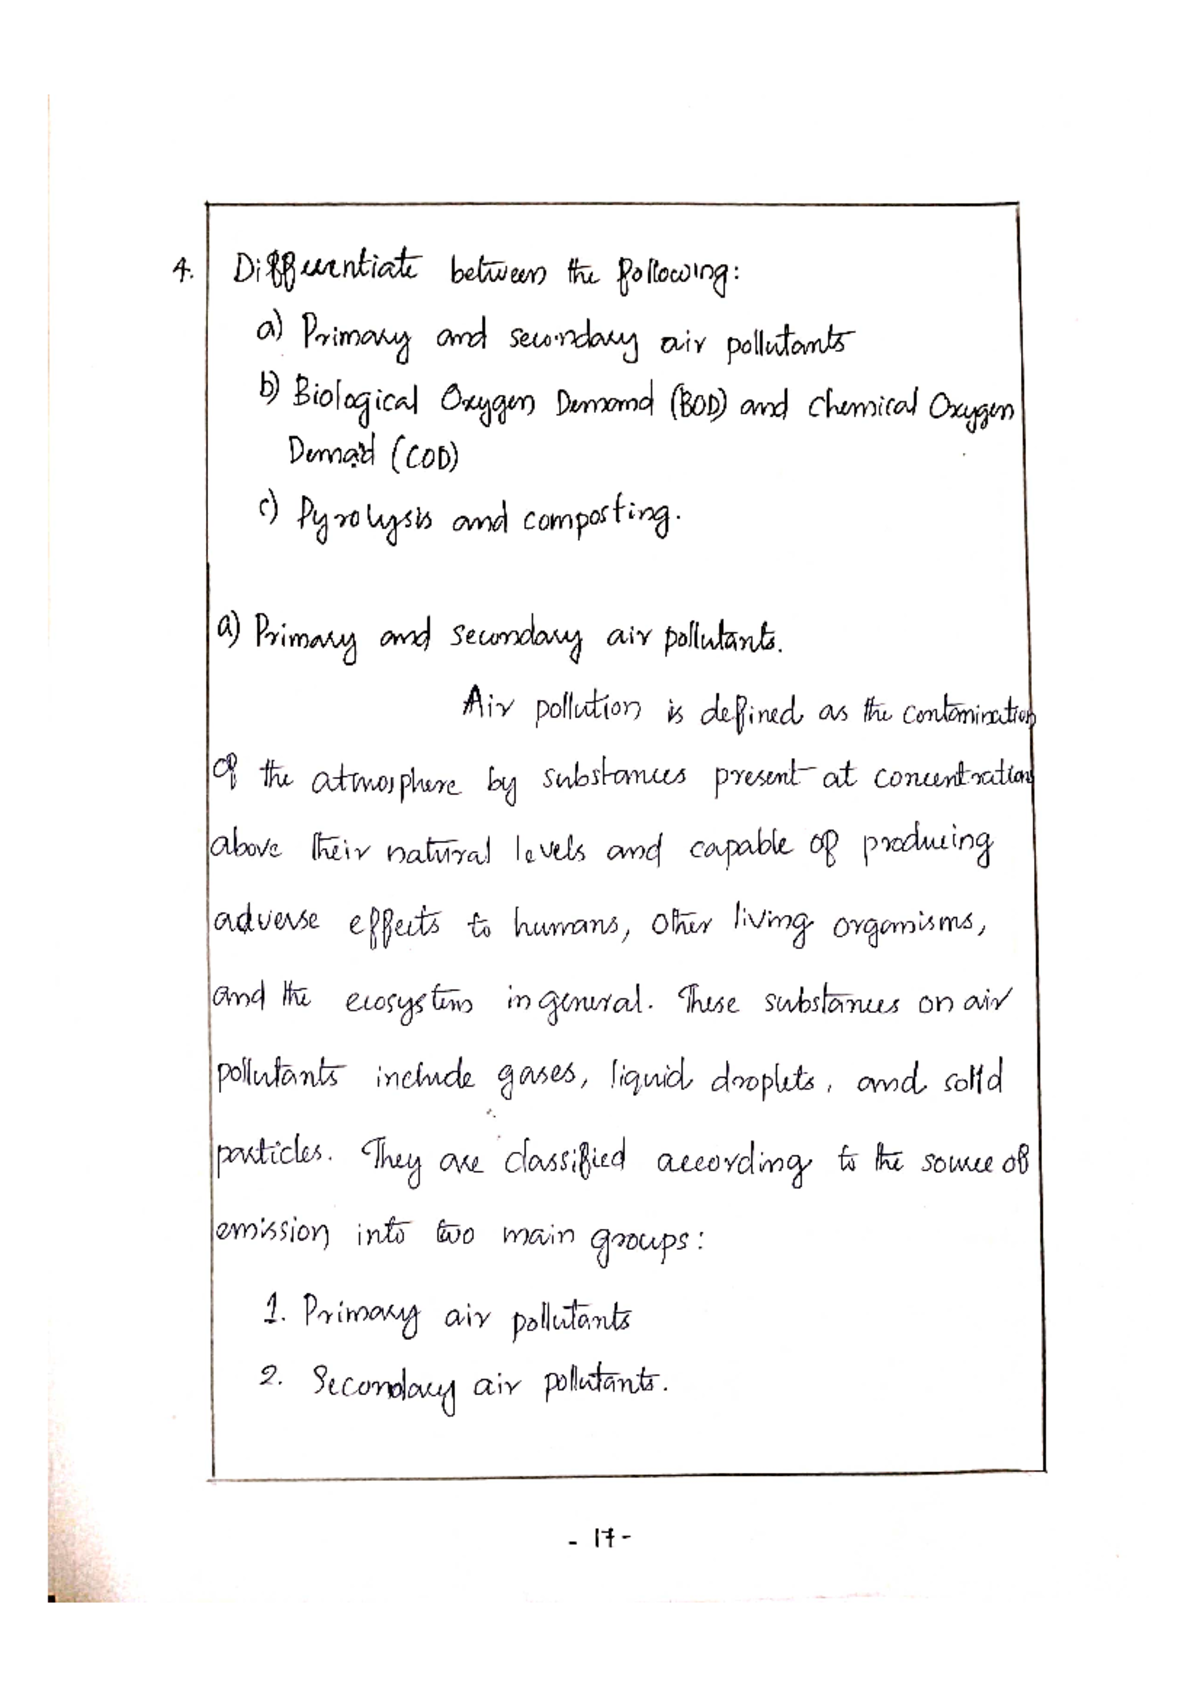 4. Differentiate between the following:
a) Primary and secondary air pollutants
b) Biological Oxygen Demand (BOD) and Chemical Oxygen
Demand (COD)
c) Pyrolysis and composting.
a) Primary and secondary air pollutants.
Air pollution is defined as the contamination
of the atmosphere by substances present at concentrations
above their natural levels and capable of producing
adverse effects to humans, other living organisms,
and the ecosystem in general. These substances on air
pollutants include gases, liquid droplets, and solid
particles. They are classified according to the source of
emission into two main groups:
1. Primary air pollutants
2. Secondary air pollutants.
- 17 -